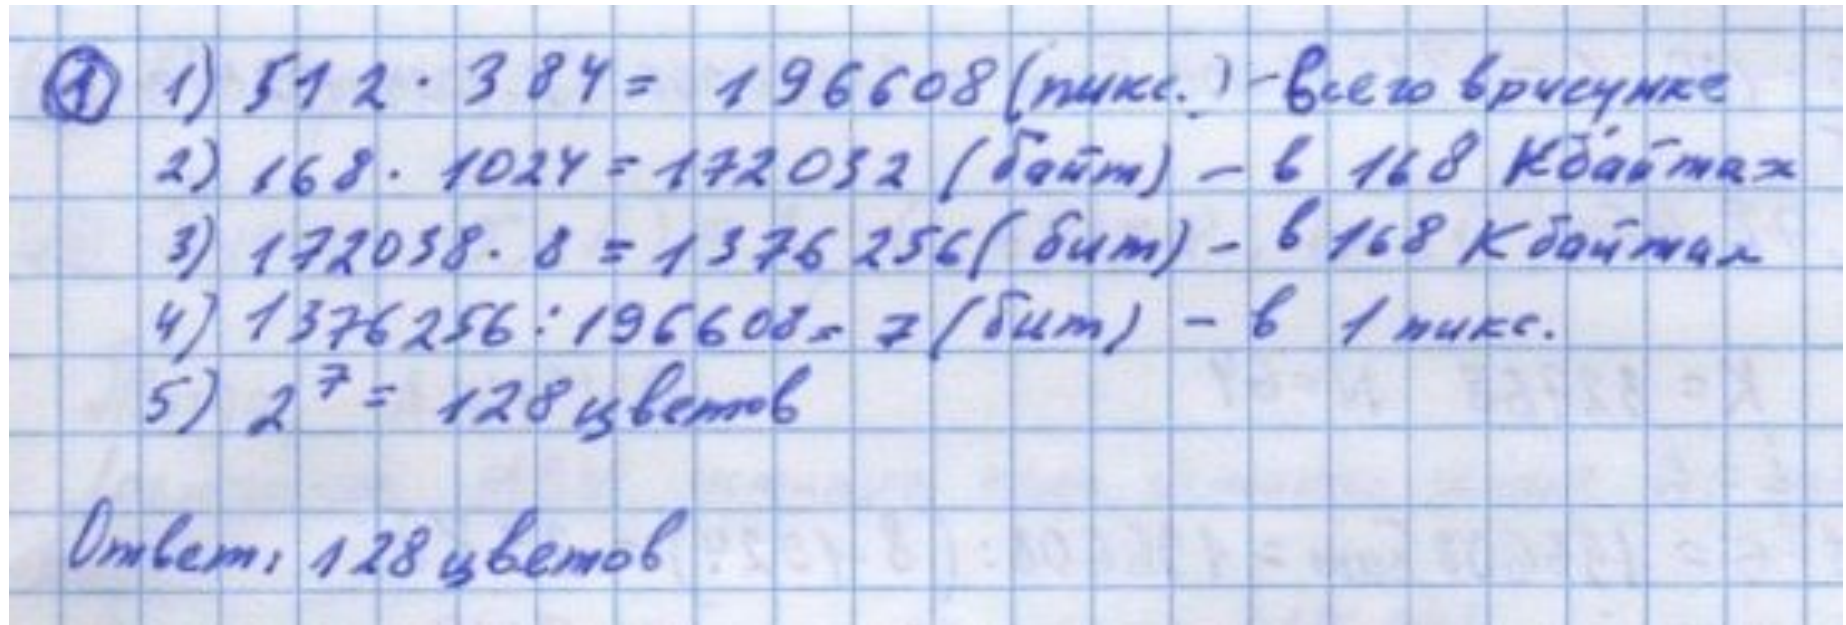 ① 1) 512 · 384 = 196608 (пикс.) - всего в рисунке
2) 168 · 1024 = 172032 (байт) - в 168 Кбайтах
3) 172038 · 8 = 1376256 (бит) - в 168 Кбайтах
4) 1376256 : 196608 = 7 (бит) - в 1 пикс.
5) 2⁷ = 128 цветов
Ответ: 128 цветов